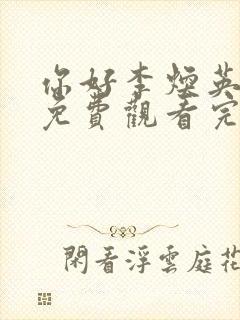 你好李煙英
免費觀看完
閑看浮雲庭花